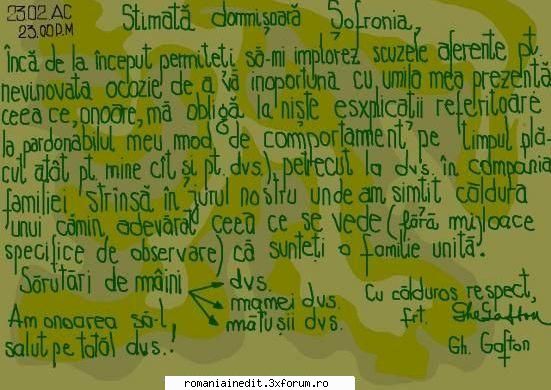 23.02.AC
23.00 P.M
Stimată domnişoară Sofronia,
Încă de la început permiteţi să-mi implorez scuzele aferente pt.
nevinovata ocazie de a vă inoportuna cu umila mea prezenţă
ceea ce, onoare, mă obligă la nişte esxplicatii referitoare
la pardonabilul meu mod de comportament pe timpul plă-
cut atât pt. mine cît şi pt. dvs., petrecut la dvs. în compania
familiei strînsă în jurul nostru unde am simtit căldura
unui cămin adevărat ceea ce se vede (fără mijloace
specifice de observare) că sunteţi o familie unită.
Sărutări de mâini
dvs.
mamei dvs.
mătuşii dvs.
Cu călduros respect,
frt.
Gh. Gafton
Am onoarea să-l
salut pe tatăl dvs.!
romaniainedit.3xforum.ro